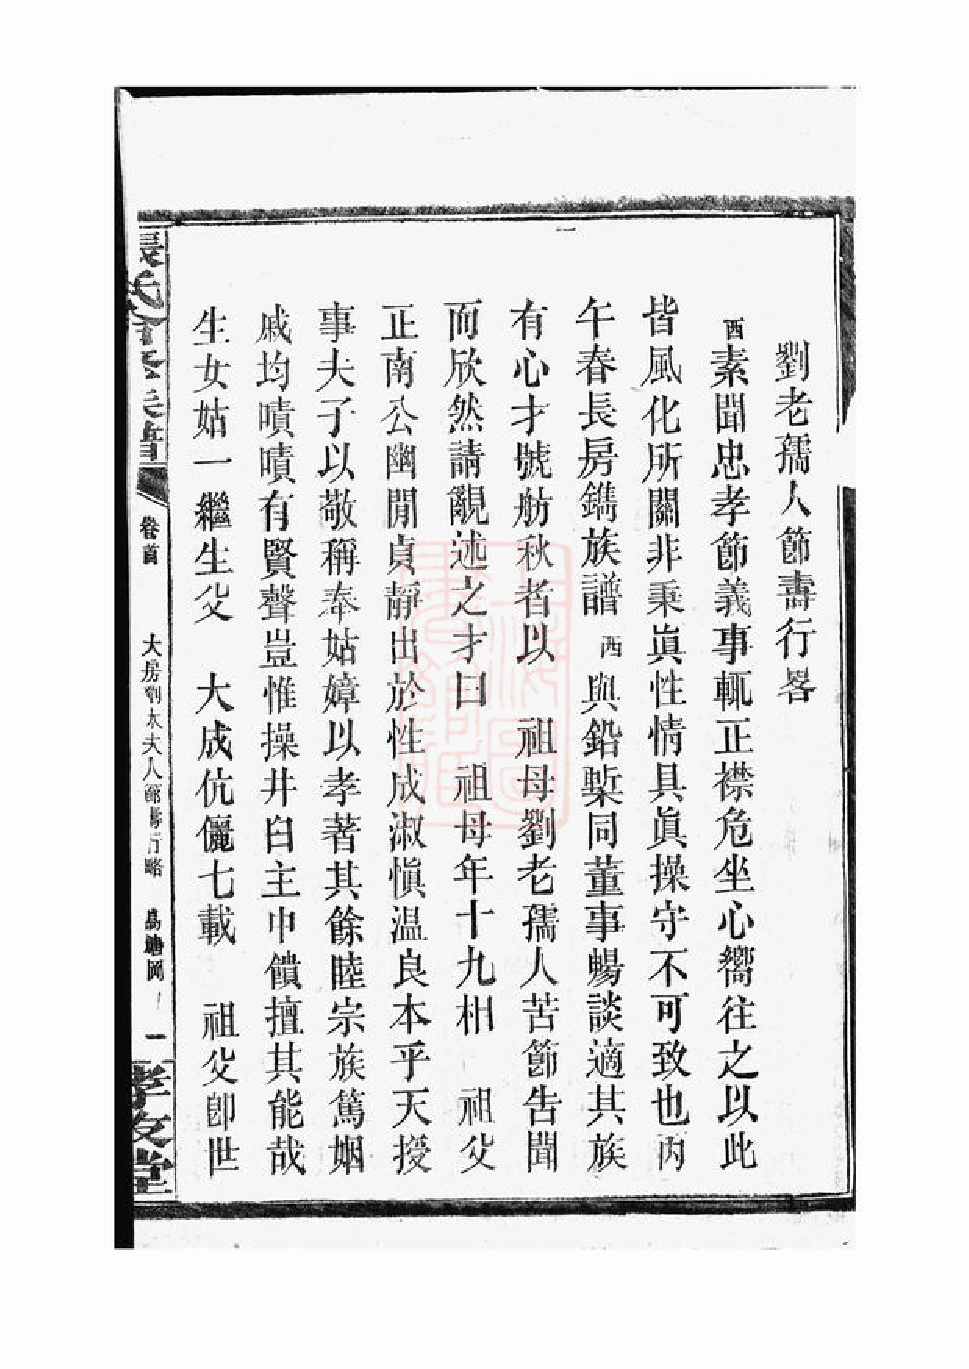 劉老孺人節壽行畧
西素聞忠孝節義事輒正襟危坐心嚮往之以此
皆風化所關非秉眞性情具眞操守不可致也丙
午春長房鐫族譜西與鉛槧同董事暢談適其族
有心才號舫秋者以 祖母劉老孺人苦節告聞
而欣然請覼述之才曰 祖母年十九相 祖父
正南公幽閒貞靜出於性成淑愼温良本乎天授
事夫子以敬稱奉姑嫜以孝著其餘睦宗族篤姻
戚均嘖嘖有賢聲豈惟操井臼主中饋擅其能哉
生女姑一繼生父 大成伉儷七載 祖父卽世
張氏會修族譜 卷首 大房劉太夫人節壽行略 一 孝友堂